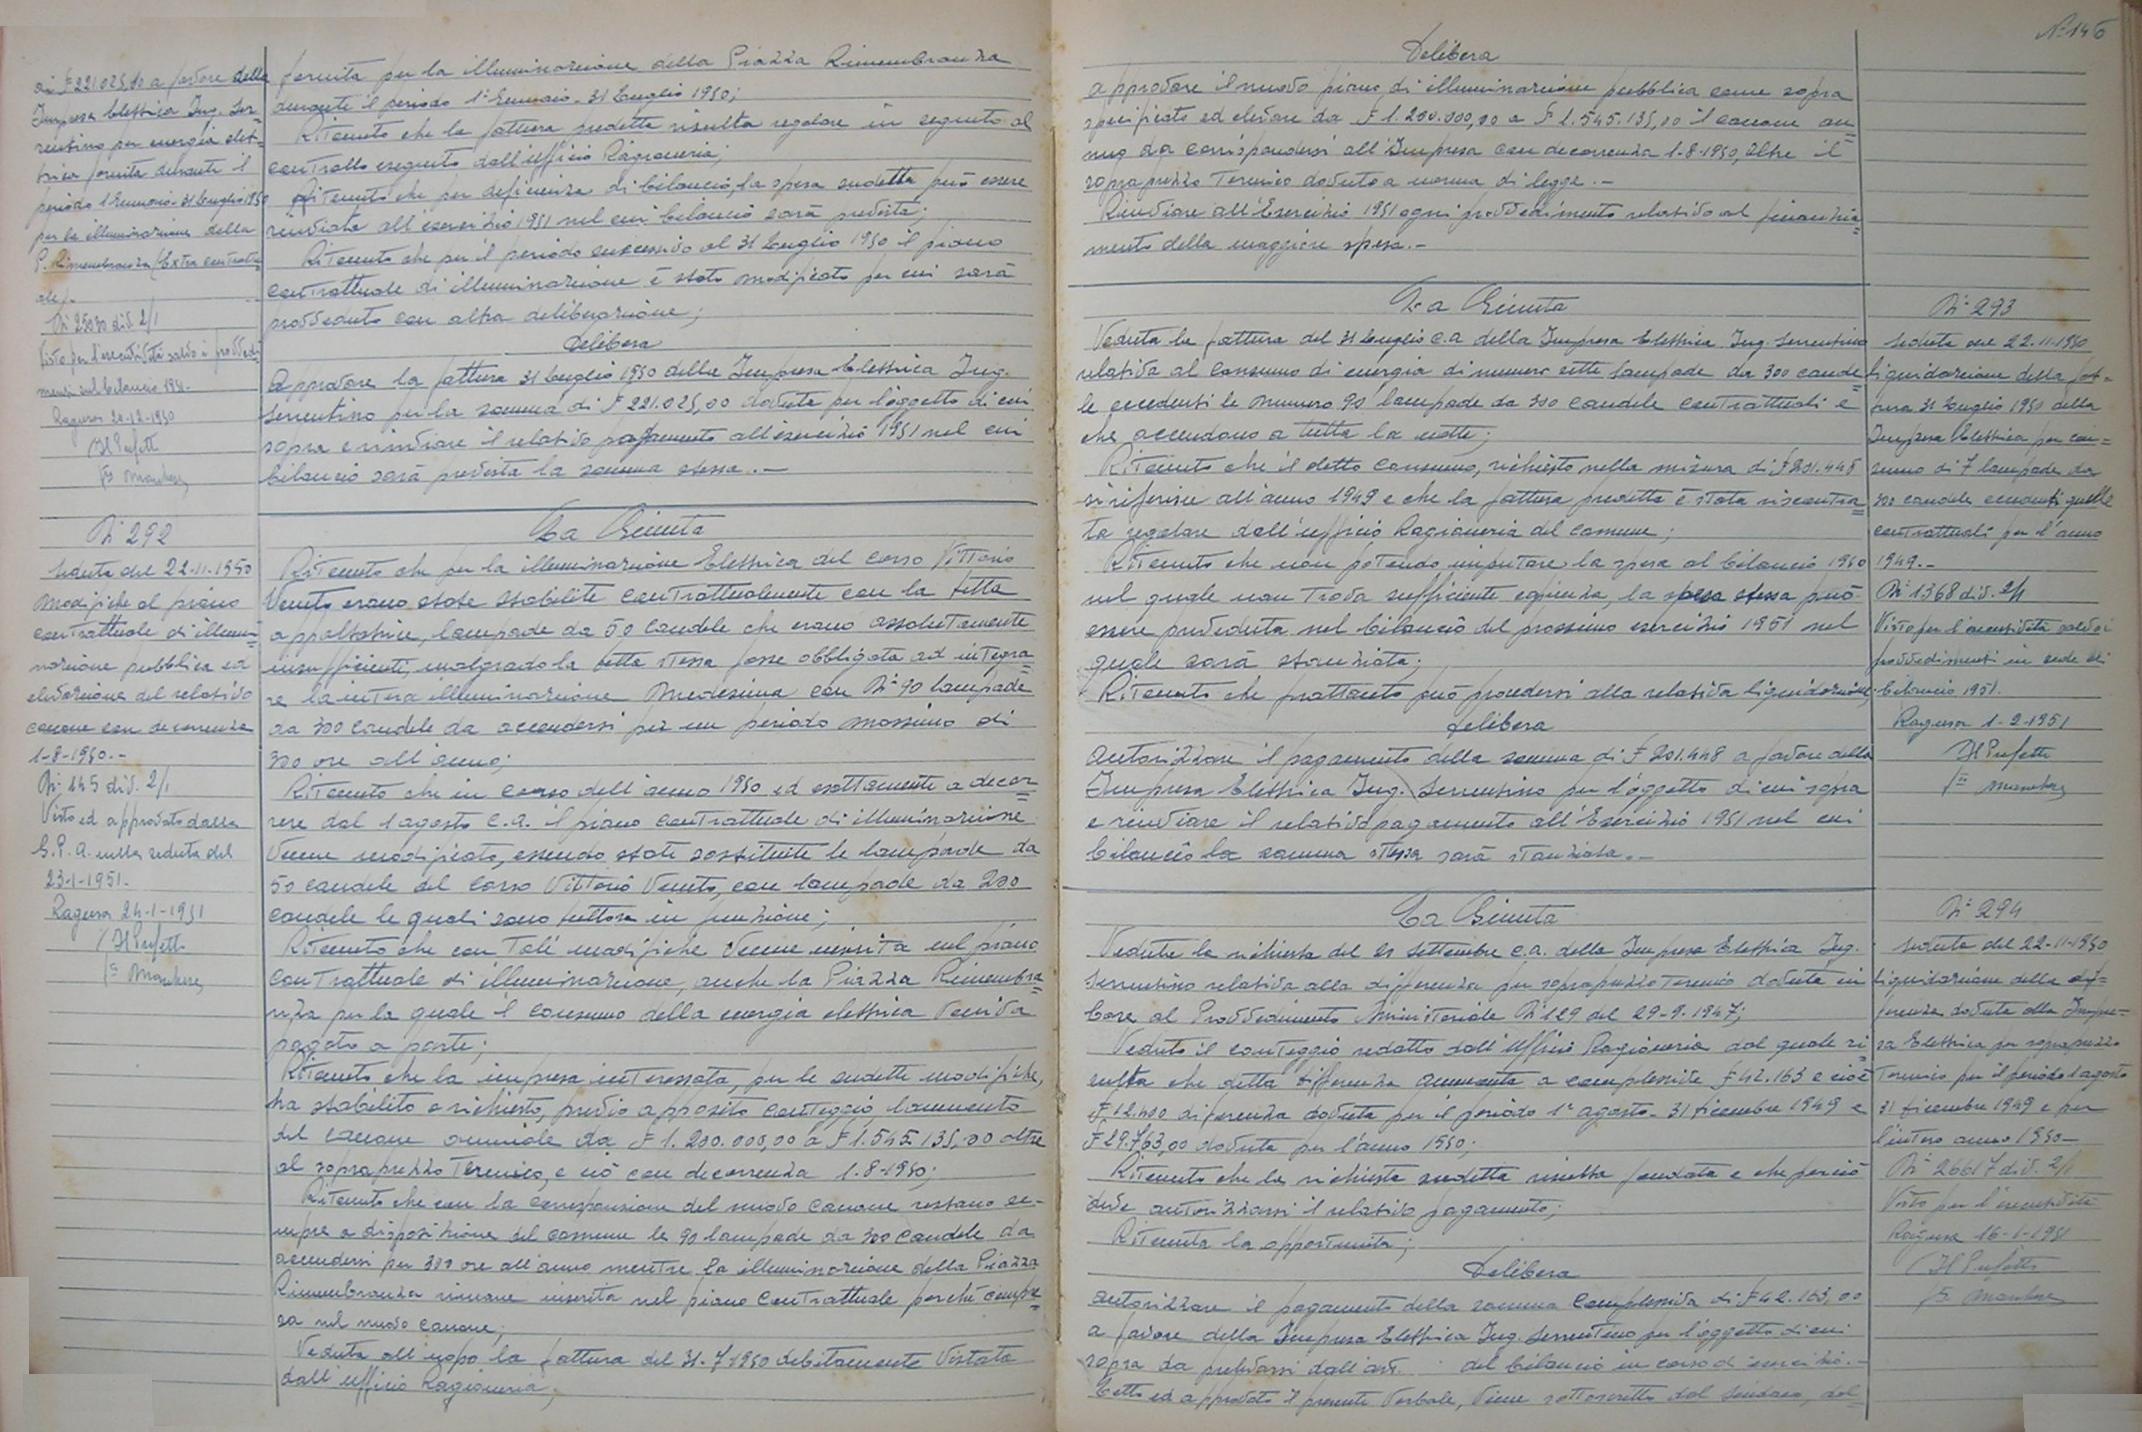 di £ 221.025,00 a favore della
Impresa Elettrica Ing. Sor=
rentino per energia elet=
trica fornita durante il
periodo 1 Gennaio - 31 Luglio 1950
per la illuminazione della
P. Rimembranza (Extra contrattu
ale).
N° 25030 div. 2/1
Visto per l'esecutività salvo i provvedi
menti sul bilancio 1951.
Ragusa 20-12-1950
Il Prefetto
N° 292
Seduta del 22-11-1950
Modifiche al piano
contrattuale di illumi=
nazione pubblica ed
elevazione del relativo
canone con decorrenza
1-8-1950.-
N° 145 div. 2/1
Visto ed approvato dalla
G.P.A. nella seduta del
23-1-1951.
Ragusa 24-1-1951
Il Prefetto
fornita per la illuminazione della Piazza Rimembranza
durante il periodo 1° Gennaio - 31 Luglio 1950;
Ritenuto che la fattura predetta risulta regolare in seguito al
controllo eseguito dall'Ufficio Ragioneria;
Ritenuto che per deficienza di bilancio, la spesa sudetta può essere
rinviata all'esercizio 1951 nel cui bilancio sarà prevista;
Ritenuto che per il periodo successivo al 31 Luglio 1950 il piano
contrattuale di illuminazione è stato modificato per cui sarà
provveduto con altra deliberazione;
Delibera
Approvare la fattura 31 Luglio 1950 della Impresa Elettrica Ing.
Serrentino per la somma di £ 221.025,00 dovuta per l'oggetto di cui
sopra e rinviare il relativo pagamento all'esercizio 1951 nel cui
bilancio sarà prevista la somma stessa.-
La Giunta
Ritenuto che per la illuminazione Elettrica del Corso Vittorio
Veneto erano state stabilite contrattualmente con la Ditta
appaltatrice, lampade da 50 candele che erano assolutamente
insufficienti, malgrado la Ditta stessa fosse obbligata ad integra=
re la intera illuminazione medesima con N° 90 lampade
da 300 candele da accendersi per un periodo massimo di
300 ore all'anno;
Ritenuto che in corso dell'anno 1950 ed esattamente a decor=
rere dal 1 agosto c.a. il piano contrattuale di illuminazione
venne modificato, essendo state sostituite le lampade da
50 candele del Corso Vittorio Veneto, con lampade da 200
candele le quali sono tuttora in funzione;
Ritenuto che con tali modifiche venne inserita nel piano
contrattuale di illuminazione, anche la Piazza Rimembra=
nza per la quale il consumo della energia elettrica veniva
pagato a parte;
Ritenuto che la impresa interessata, per le sudette modifiche,
ha stabilito e richiesto, previo apposito conteggio l'aumento
del canone annuale da £ 1.200.000,00 a £ 1.545.135,00 oltre
al soprapprezzo Termico, e ciò con decorrenza 1-8-1950;
Ritenuto che con la corresponsione del nuovo canone restano se-
mpre a disposizione del comune le 90 lampade da 300 candele da
accendersi per 300 ore all'anno mentre la illuminazione della Piazza
Rimembranza rimane inserita nel piano contrattuale perché compre=
sa nel nuovo canone;
Veduta all'uopo la fattura del 31-7-1950 debitamente vistata
dall'ufficio Ragioneria;
N° 146
Delibera
approvare il nuovo piano di illuminazione pubblica come sopra
specificato ed elevare da £ 1.200.000,00 a £ 1.545.135,00 il canone an=
nuo da corrispondersi all'Impresa con decorrenza 1-8-1950, oltre il
sopraprezzo Termico dovuto a norma di legge.-
Rinviare all'Esercizio 1951 ogni provvedimento relativo al finanzia=
mento della maggiore spesa.-
La Giunta
Veduta la fattura del 31 Luglio c.a. della Impresa Elettrica Ing. Serrentino
relativa al consumo di energia di numero sette lampade da 300 cande=
le eccedenti le numero 90 lampade da 300 candele contrattuali e
che accendono a tutta la notte;
Ritenuto che il detto consumo, richiesto nella misura di £ 201.448
si riferisce all'anno 1949 e che la fattura predetta è stata riscontra=
ta regolare dall'ufficio Ragioneria del comune;
Ritenuto che non potendo imputare la spesa al bilancio 1950
nel quale non trova sufficiente capienza, la spesa stessa può
essere preveduta nel bilancio del prossimo esercizio 1951 nel
quale sarà stanziata;
Ritenuto che frattanto può procedersi alla relativa liquidazione,
delibera
Autorizzare il pagamento della somma di £ 201.448 a favore della
Impresa Elettrica Ing. Serrentino per l'oggetto di cui sopra
e rinviare il relativo pagamento all'Esercizio 1951 nel cui
bilancio la somma stessa sarà stanziata.-
La Giunta
Vedute la richiesta del 21 Settembre c.a. della Impresa Elettrica Ing.
Serrentino relativa alla differenza per sopraprezzo Termico dovuta in
base al Provvedimento Ministeriale N° 129 del 29-9-1947;
Veduto il conteggio redatto dall'Ufficio Ragioneria dal quale ri=
sulta che detta differenza ammonta a complessive £ 42.163 e cioè
£ 12.400 differenza dovuta per il periodo 1° agosto - 31 dicembre 1949 e
£ 29.763,00 dovuta per l'anno 1950;
Ritenuto che la richiesta sudetta risulta fondata e che perciò
deve autorizzarsi il relativo pagamento;
Ritenuta la opportunità;
Delibera
autorizzare il pagamento della somma complessiva di £ 42.163,00
a favore della Impresa Elettrica Ing. Serrentino per l'oggetto di cui
sopra da prelevarsi dall'art. del bilancio in corso d'esercizio.-
Letto ed approvato il presente Verbale, viene sottoscritto dal Sindaco, dal
N° 293
Seduta del 22-11-1950
Liquidazione della fat=
tura 31 Luglio 1950 della
Impresa Elettrica per con=
sumo di 7 lampade da
300 candele eccedenti quelle
contrattuali per l'anno
1949.-
N° 1368 div. 2/1
Visto per l'esecutività salvo i
provvedimenti in sede di
bilancio 1951.
Ragusa 1-2-1951
Il Prefetto
N° 294
Seduta del 22-11-1950
Liquidazione della dif=
ferenza dovuta alla Impre=
sa Elettrica per sopraprezzo
Termico per il periodo 1 agosto
31 dicembre 1949 e per
l'intero anno 1950-
N° 26617 div. 2/1
Visto per l'esecutività
Ragusa 16-1-1951
Il Prefetto